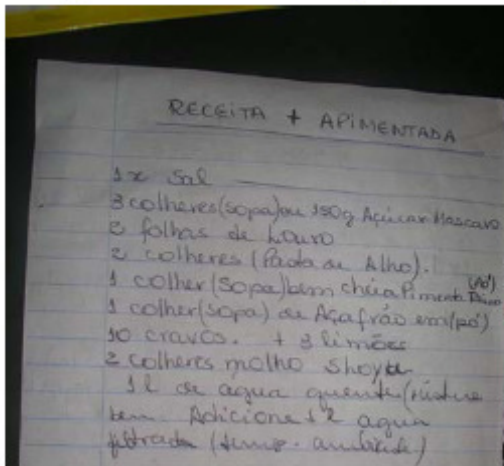 RECEITA + APIMENTADA
1x sal
3 colheres (sopa) ou 150g Açúcar Mascavo
2 folhas de Louro
2 colheres (Pasta de Alho).
1 colher (Sopa) bem cheia Pimenta (Pó)
1 colher (sopa) de Açafrão em (pó)
10 cravos. + 3 limões
2 colheres molho Shoyu
1 l de agua quente (misture
bem. Adicione + 1 l agua
filtrada (temp. ambiente)